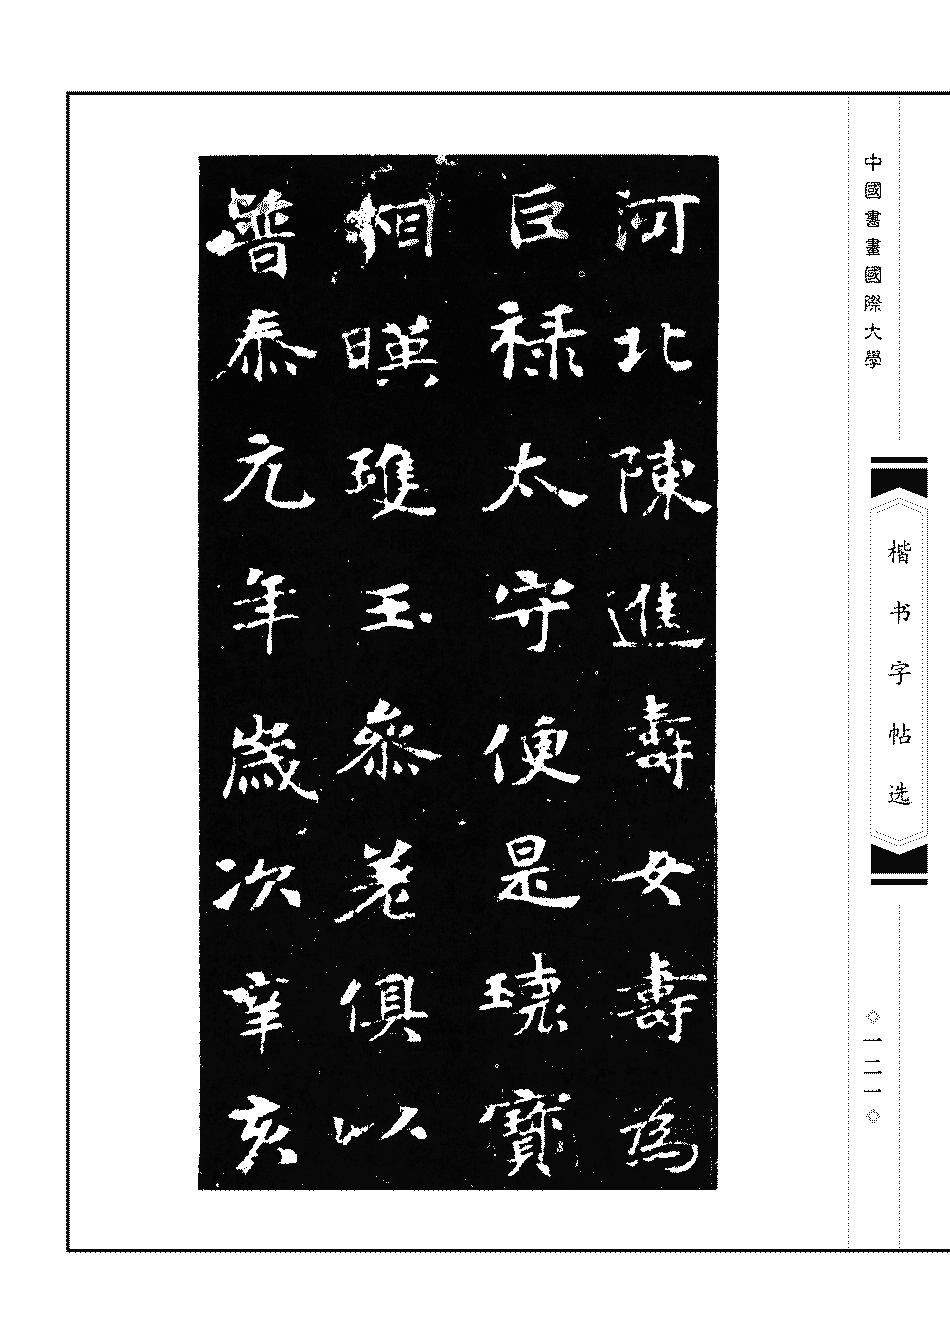 中國書畫國際大學
楷书字帖选
一二一
河北陳進壽女壽為
巨祿太守便是瓌寶
相暎瓊玉參差俱以
普泰元年歲次辛亥